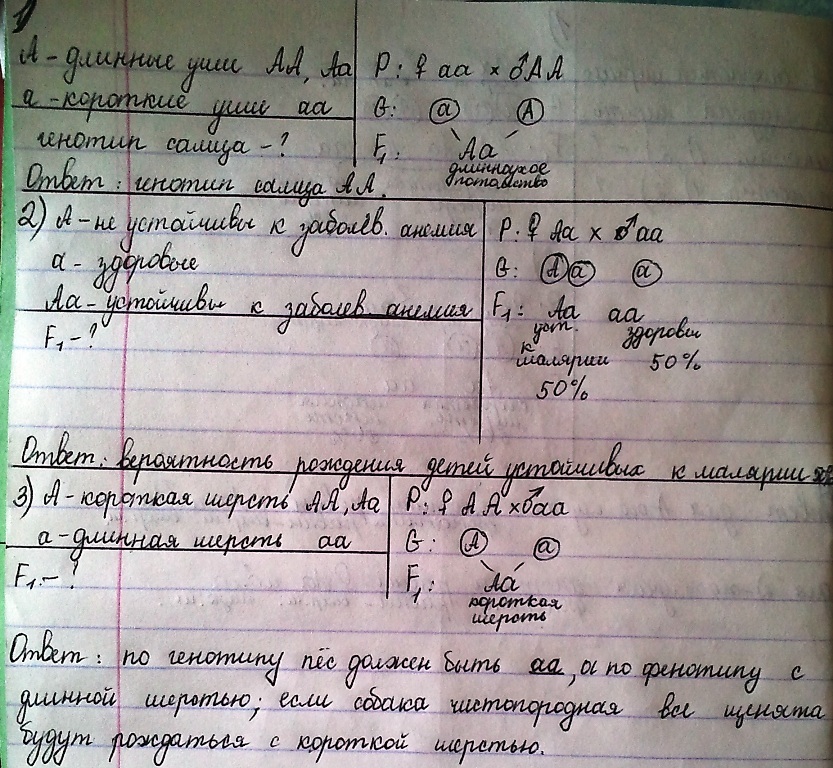 1)
А - длинные уши АА, Аа
а - короткие уши аа
генотип самца - ?
Р: ♀ аа × ♂АА
G: а А
F₁: Аа
длинноухое
потомство
Ответ: генотип самца АА.
2) А - не устойчивы к заболев. анемия
а - здоровые
Аа - устойчивы к заболев. анемия
F₁ - ?
Р: ♀ Аа × ♂ аа
G: А а а
F₁: Аа аа
уст. здоровы
к
малярии 50%
50%
Ответ: вероятность рождения детей устойчивых к малярии
3) А - короткая шерсть АА, Аа
а - длинная шерсть аа
F₁ - ?
Р: ♀ АА × ♂аа
G: А а
F₁: Аа
короткая
шерсть
Ответ: по генотипу пёс должен быть аа, а по фенотипу с
длинной шерстью; если собака чистопородная все щенята
будут рождаться с короткой шерстью.